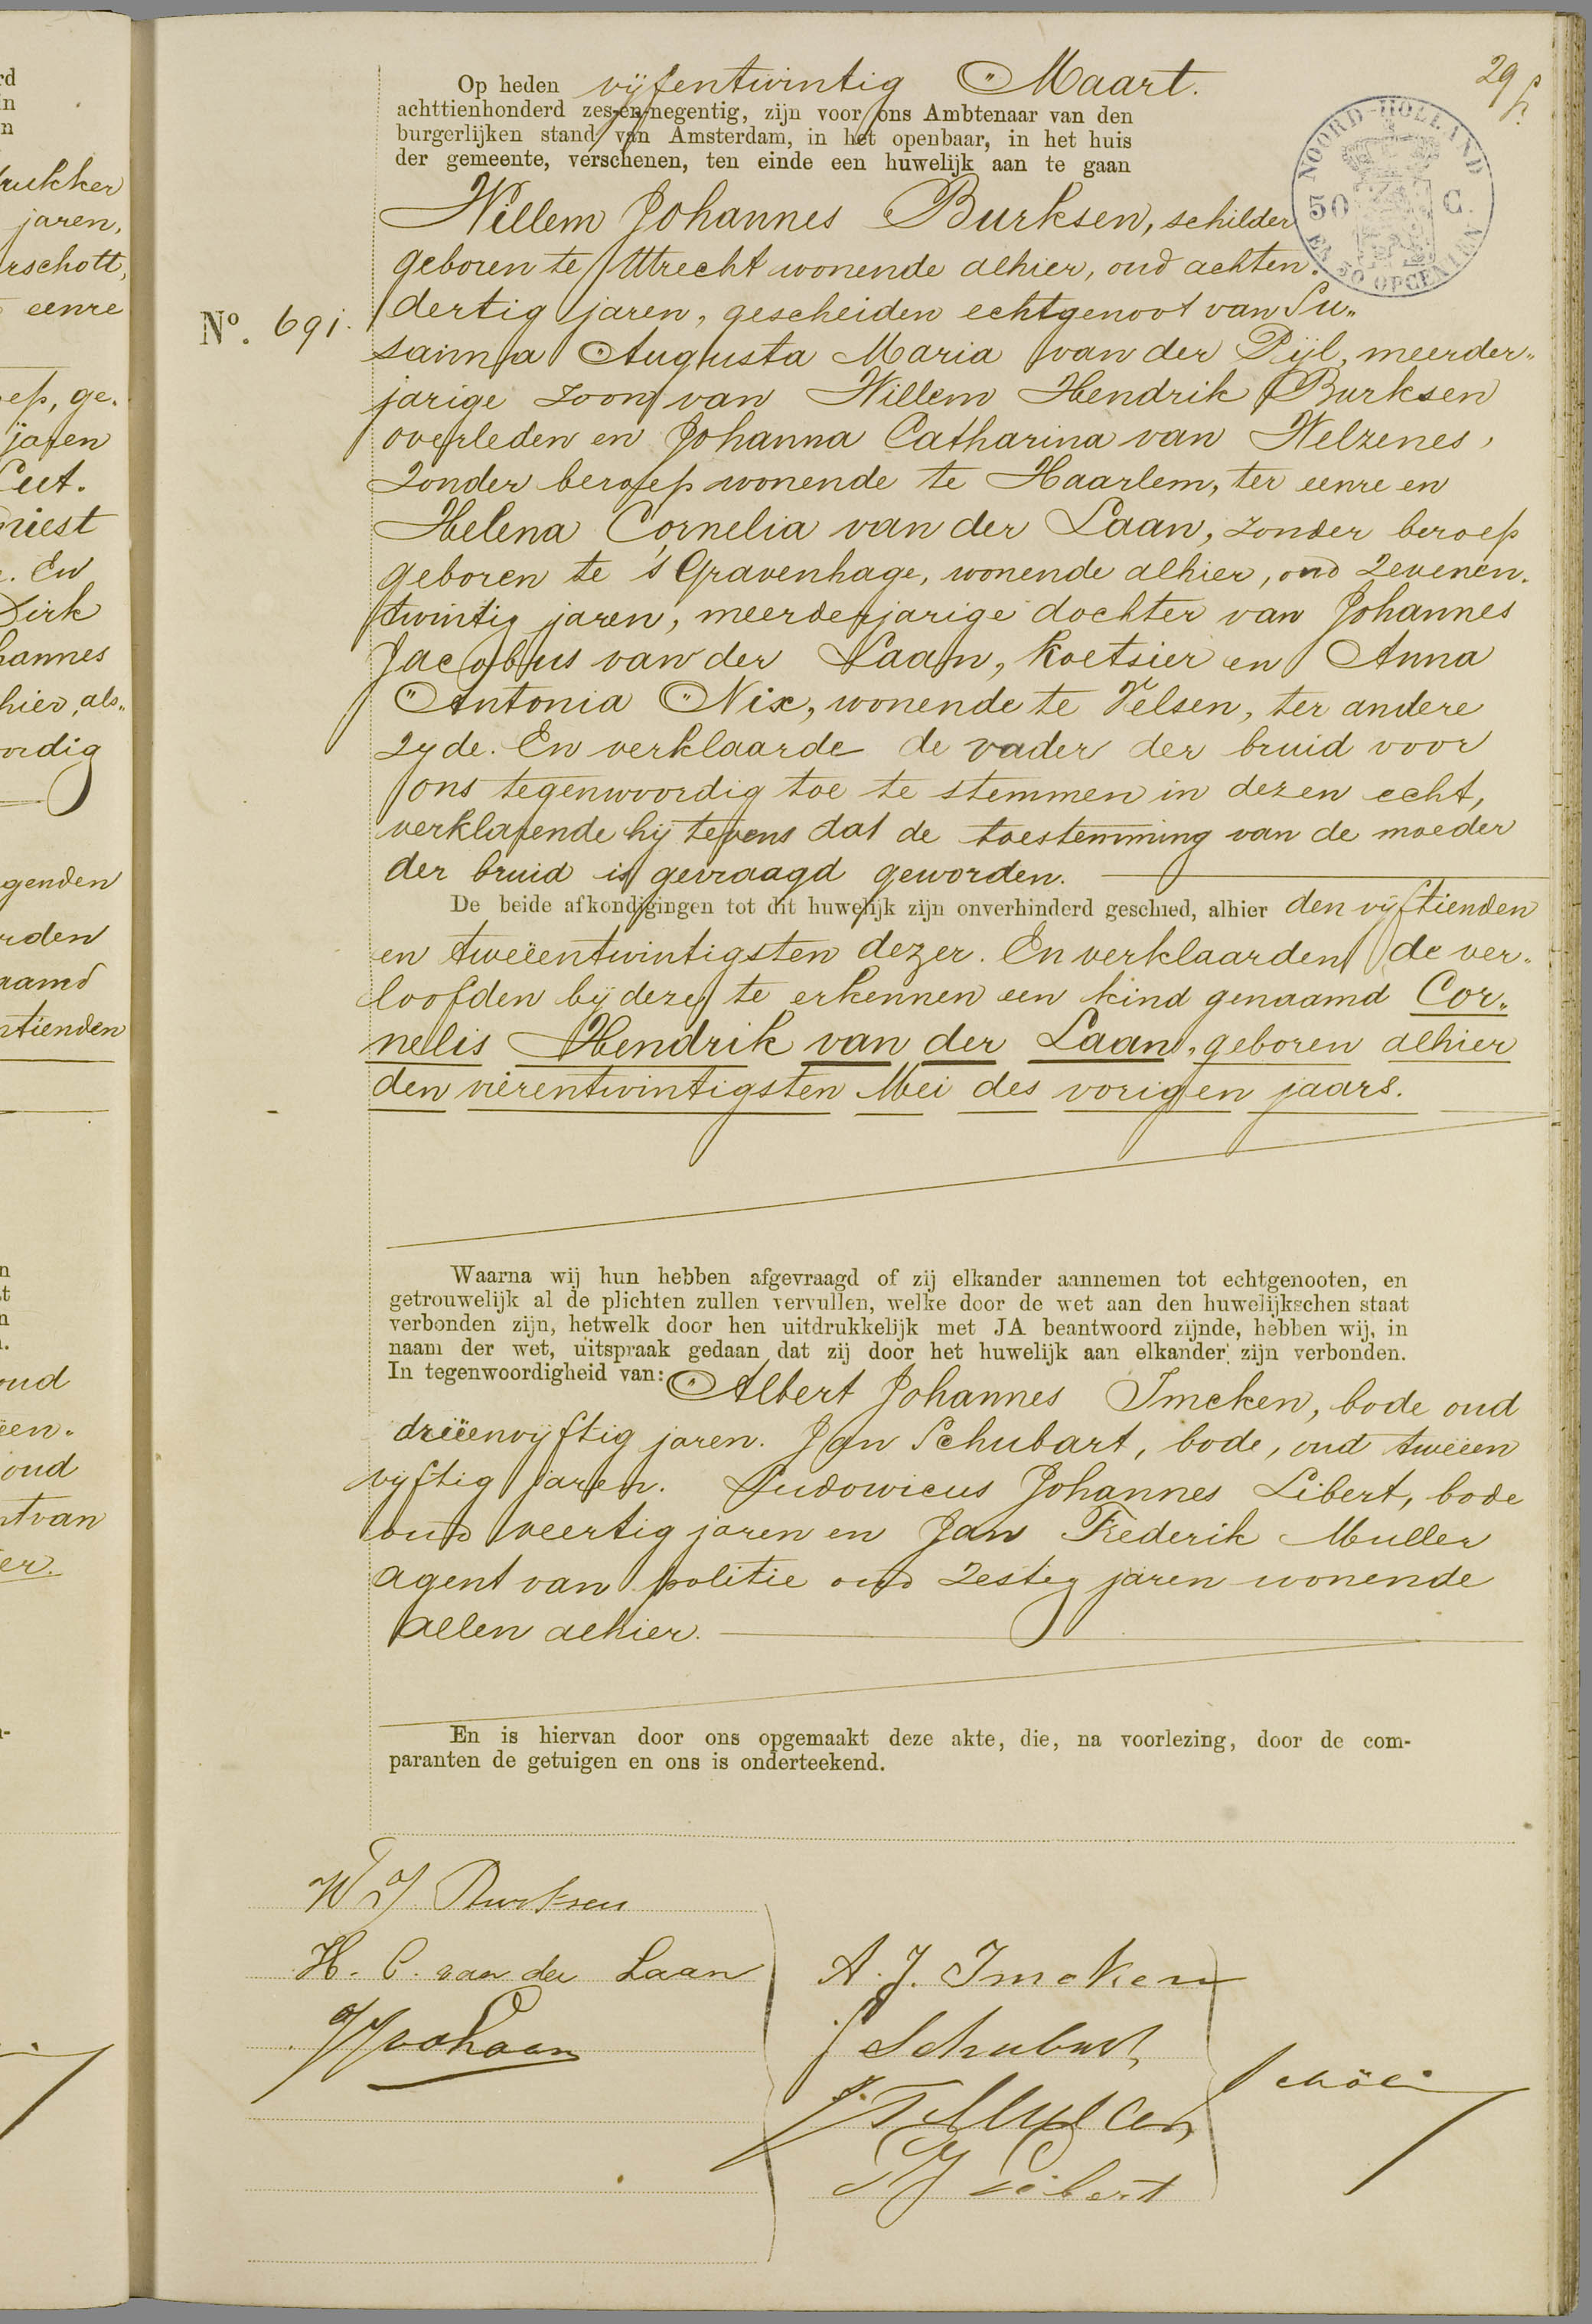 29
Op heden vijfentwintig Maart.
achttienhonderd zes-en-negentig, zijn voor ons Ambtenaar van den
burgerlijken stand van Amsterdam, in het openbaar, in het huis
der gemeente, verschenen, ten einde een huwelijk aan te gaan
NOORD-HOLLAND
50 C.
EN 50 OPCENTEN
Willem Johannes Burksen, schilder
geboren te Utrecht wonende alhier, oud achten-
No. 691.
dertig jaren, gescheiden echtgenoot van Su-
sanna Augusta Maria van der Pijl, meerder-
jarige zoon van Willem Hendrik Burksen
overleden en Johanna Catharina van Welzenes,
zonder beroep wonende te Haarlem, ter eenre en
Helena Cornelia van der Laan, zonder beroep
geboren te 's Gravenhage, wonende alhier, oud zevenen-
twintig jaren, meerderjarige dochter van Johannes
Jacobus van der Laan, koetsier en Anna
Antonia Nix, wonende te Velsen, ter andere
zyde. En verklaarde de vader der bruid voor
ons tegenwoordig toe te stemmen in dezen echt,
verklarende hij tevens dat de toestemming van de moeder
der bruid is gevraagd geworden.
De beide afkondigingen tot dit huwelijk zijn onverhinderd geschied, alhier den vijftienden
en tweëentwintigsten dezer. En verklaarden de ver-
loofden bij deze te erkennen een kind genaamd Cor-
nelis Hendrik van der Laan, geboren alhier
den vierentwintigsten Mei des vorigen jaars.
Waarna wij hun hebben afgevraagd of zij elkander aannemen tot echtgenooten, en
getrouwelijk al de plichten zullen vervullen, welke door de wet aan den huwelijkschen staat
verbonden zijn, hetwelk door hen uitdrukkelijk met JA beantwoord zijnde, hebben wij, in
naam der wet, uitspraak gedaan dat zij door het huwelijk aan elkander zijn verbonden.
In tegenwoordigheid van: Albert Johannes Imcken, bode oud
drieënvyftig jaren. Jan Schubart, bode, oud tweëen
vyftig jaren. Ludowicus Johannes Libert, bode
oud veertig jaren en Jan Frederik Muller
agent van politie oud zestig jaren wonende
allen alhier.
En is hiervan door ons opgemaakt deze akte, die, na voorlezing, door de com-
paranten de getuigen en ons is onderteekend.
W J Burksen
H. C. van der Laan
JJ vd Laan
A. J. Imcken
J Schubart,
J. F Muller
L J Libert
rukker
jaren,
rschott,
eenre
ep, ge-
jaren
niest
En
Dirk
hannes
hier, als-
ordig
genden
rden
aamd
ntienden
oud
een-
oud
ntvan
er.